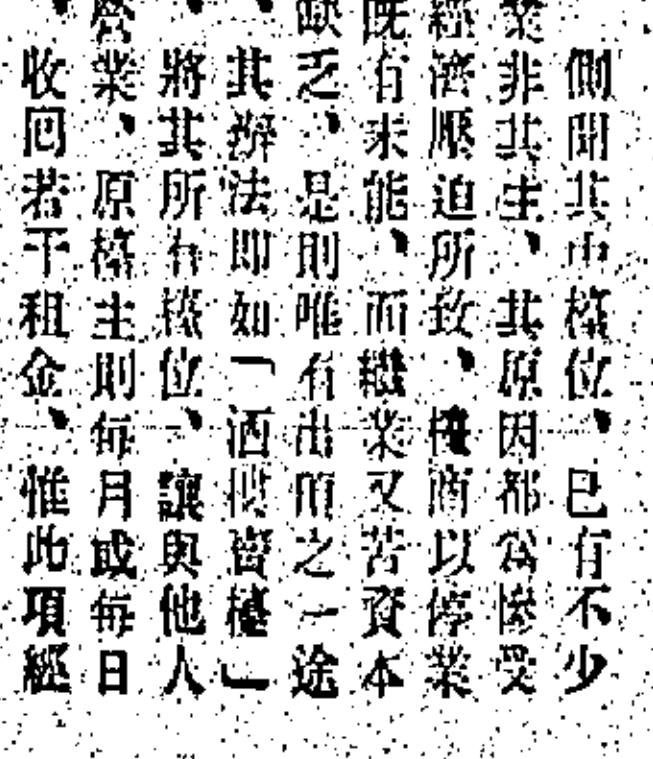 側聞其中檔位、已有不少
業非其主、其原因都爲慘受
經濟壓迫所致、檔商以停業
既有未能、而繼業又苦資本
缺乏、是則唯有出頂之一途
、其辦法即如「酒樓賣檯」
、將其所有檔位、讓與他人
營業、原檔主則每月或每日
、收囘若干租金、惟此項經